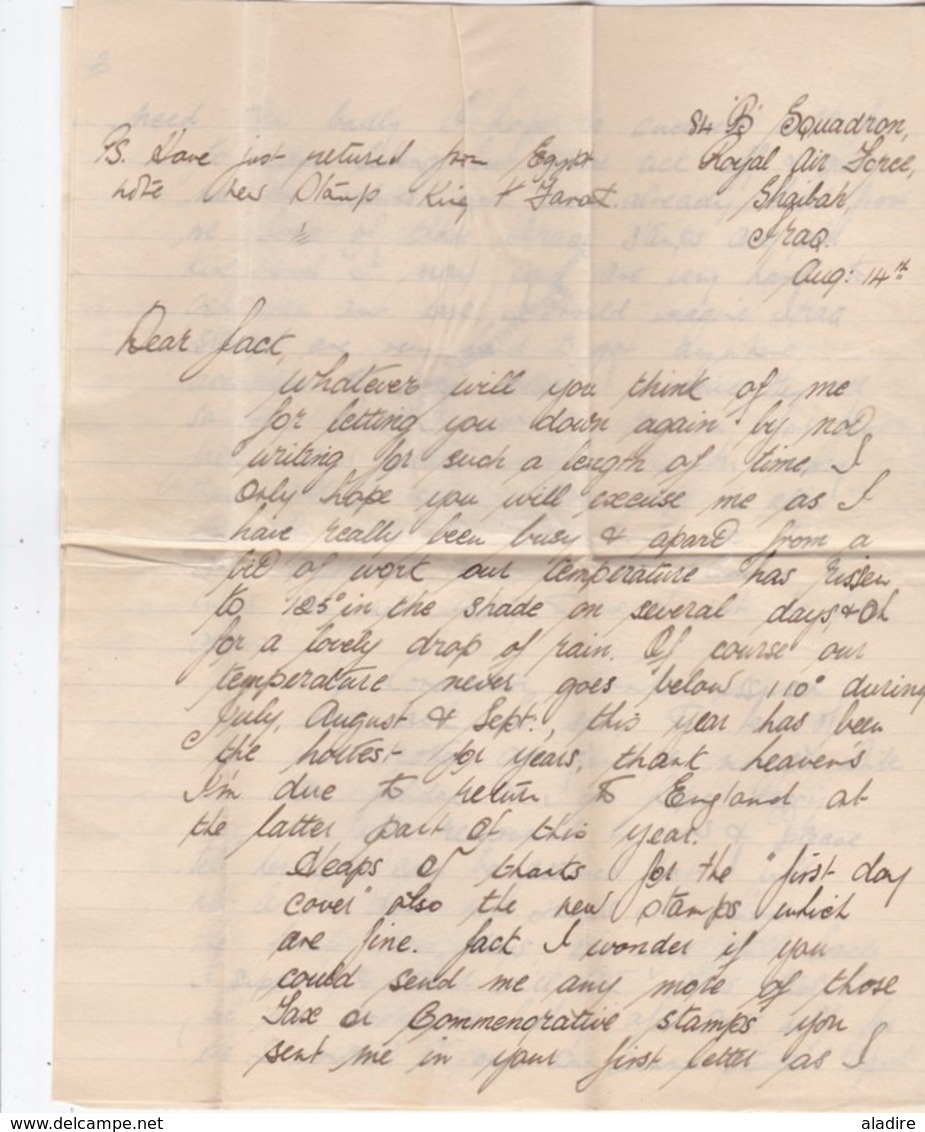 84 "B" Squadron,
Royal Air Force,
Shaibah,
Iraq.
Aug: 14th
PS. Have just returned from Egypt
note new Stamp King +
Dear Jack,
Whatever will you think of me
for letting you down again by not
writing for such a length of time, I
only hope you will excuse me as I
have really been busy & apart from a
bit of work our temperature has rissen
to 125° in the shade on several days, & Oh
for a lovely drop of rain. Of course our
temperature never goes below 110° during
July, August & Sept., this year has been
the hottest for years, thank heaven's
I'm due to return to England at
the latter part of this year.
Heaps of thanks for the "first day
cover" also the new stamps which
are fine. Jack I wonder if you
could send me any more of those
Tax or Commemorative stamps you
sent me in your first letter as I
aladire